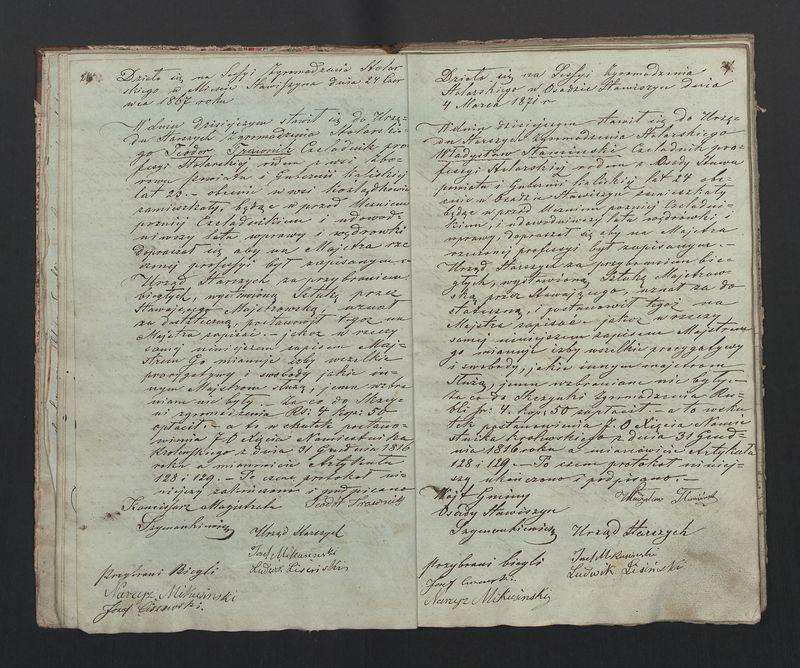 Działo się na Sessyi Zgromadzenia Stolar-
skiego w Mieście Stawiszynie dnia 24 Czer-
wca 1867 roku
W dniu dzisiejszym stawił się do Urzę-
du Starszych Zgromadzenia Stolarskie-
go Teodor Trawnik Czeladnik pro-
fesyi Stolarskiej rodem z wsi
Powiatu i Gubernii Kaliskiej
lat 23 – obecnie w wsi
zamieszkały, będąc w przód Uczniem
pozniej Czeladnikiem i udowod-
niwszy lata wprawy i wędrówki
dopraszał się aby na Majstra rze-
czonej profesyi był zapisanym –
Urząd Starszych za przybraniem
biegłych, wystawioną Sztukę przez
Stawającego Majstrowską, uznał
za dostateczną, postanowił tegoż na
Majstra zapisać – jakoż w rzeczy
samej niniejszem zapisem Maj-
strem Go mianuje żeby wszelkie
prerogatywy i swobody jakie in-
nym Majstrom służą, jemu wzbra-
niane nie były. – za co do Skrzyn-
ki zgromadzenia Rs: 4 kop: 50
opłacił. – a to w skutek postano-
wienia J. O. Xięcia Namiestnika
Królewskiego z dnia 31 Grudnia 1816
roku a mianowicie Artykułu
128 i 129. – Po czem protokół ni-
niejszy zakończono i podpisano
Teodor Trawnik
Magistratu
Szymankiewicz
Urząd Starszych
Józef Mikuszinski
Ludwik Lisiński
Przybrani Biegli
Narcyz Mikuszinski
Józef
Działo się na Sessyi Zgromadzenia
Stolarskiego w Osadzie Stawiszyn dnia
4 Marca 1871 r
W dniu dzisiejszym stawił się do Urzę-
du Starszych Zgromadzenia Stolarskiego
Władysław Czeladnik pro-
fesyi Stolarskiej rodem z Osady
powiatu i Gubernii Kaliskiej lat 24 obe-
cnie w Osadzie Stawiszyn zamieszkały
będąc w przód Uczniem pozniej Czeladni-
kiem, i udowodniwszy lata wędrówki i
wprawy, dopraszał się aby na Majstra
rzeczonej profesyi był zapisanym. –
Urząd Starszych za przybraniem bie-
głych, wystawioną Sztukę Majstrow-
ską przez Stawającego – uznał za do-
stateczną, i postanowił tegoż na
Majstra zapisać – jakoż w rzeczy
samej niniejszem zapisem Majstrem
go mianuje, żeby wszelkie prerogatywy
i swobody, jakie innym majstrom
służą, jemu wzbraniane nie były. –
za co do Skrzynki Zgromadzenia Ru-
bli sr: 4. kop: 50 zapłacił – a to w sku-
tek postanowienia J. O. Xięcia Namie-
stnika Królewskiego z dnia 31 Grud-
nia 1816 roku a mianowicie Artykułu
128 i 129. – Po czem protokół niniej-
szy ukończono i podpisano. –
Wójt Gminy
Władysław
Osady Stawiszyn
Szymankiewicz
Urząd Starszych
Józef Mikuszinski
Ludwik Lisiński
Przybrani biegli
Józef
Narcyz Mikuszinski